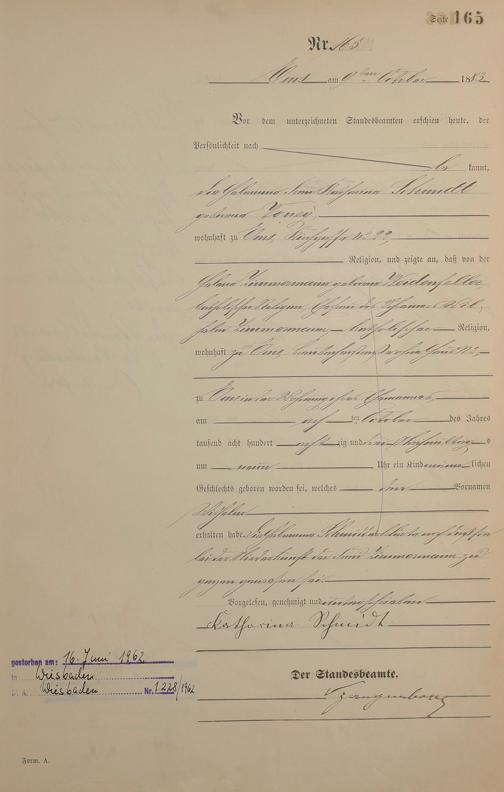 Seite 165
Nr. 165
Ems am 9ten October 1883
Vor dem unterzeichneten Standesbeamten erschien heute, der
Persönlichkeit nach
be kannt,
die Hebamme Frau Katharina Schmidt
geborene
wohnhaft zu Ems, Kirchgasse No 22,
Religion, und zeigte an, daß von der
Helena Zimmermann geborene Weidenfeller
katholischer Religion, Ehefrau des Johann Wil
helm Zimmermann, katholischer Religion,
wohnhaft zu Ems
zu Ems in der Wohnung ihres Ehemannes,
am acht ten October des Jahres
tausend acht hundert acht zig und drei Nachmittags
um neun Uhr ein Kind männlichen
Geschlechts geboren worden sei, welches den Vornamen
Wilhelm
erhalten habe. Die Hebamme Schmidt erklärte noch daß sie
bei der Niederkunft der Frau Zimmermann zu
gegen gewesen sei.
Vorgelesen, genehmigt und unterschrieben
Katharina Schmidt
Der Standesbeamte.
gestorben am: 16. Juni 1962
in Wiesbaden
St. A. Wiesbaden Nr. 1228/1962
Form. A.